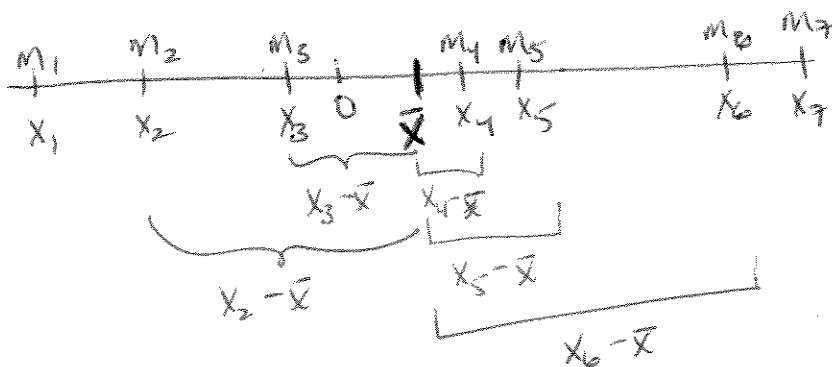 m₁ m₂ m₃ m₄ m₅ m₆ m₇
x₁ x₂ x₃ 0 x̄ x₄ x₅ x₆ x₇
x₃ - x̄ x₄ - x̄
x₂ - x̄ x₅ - x̄
x₆ - x̄